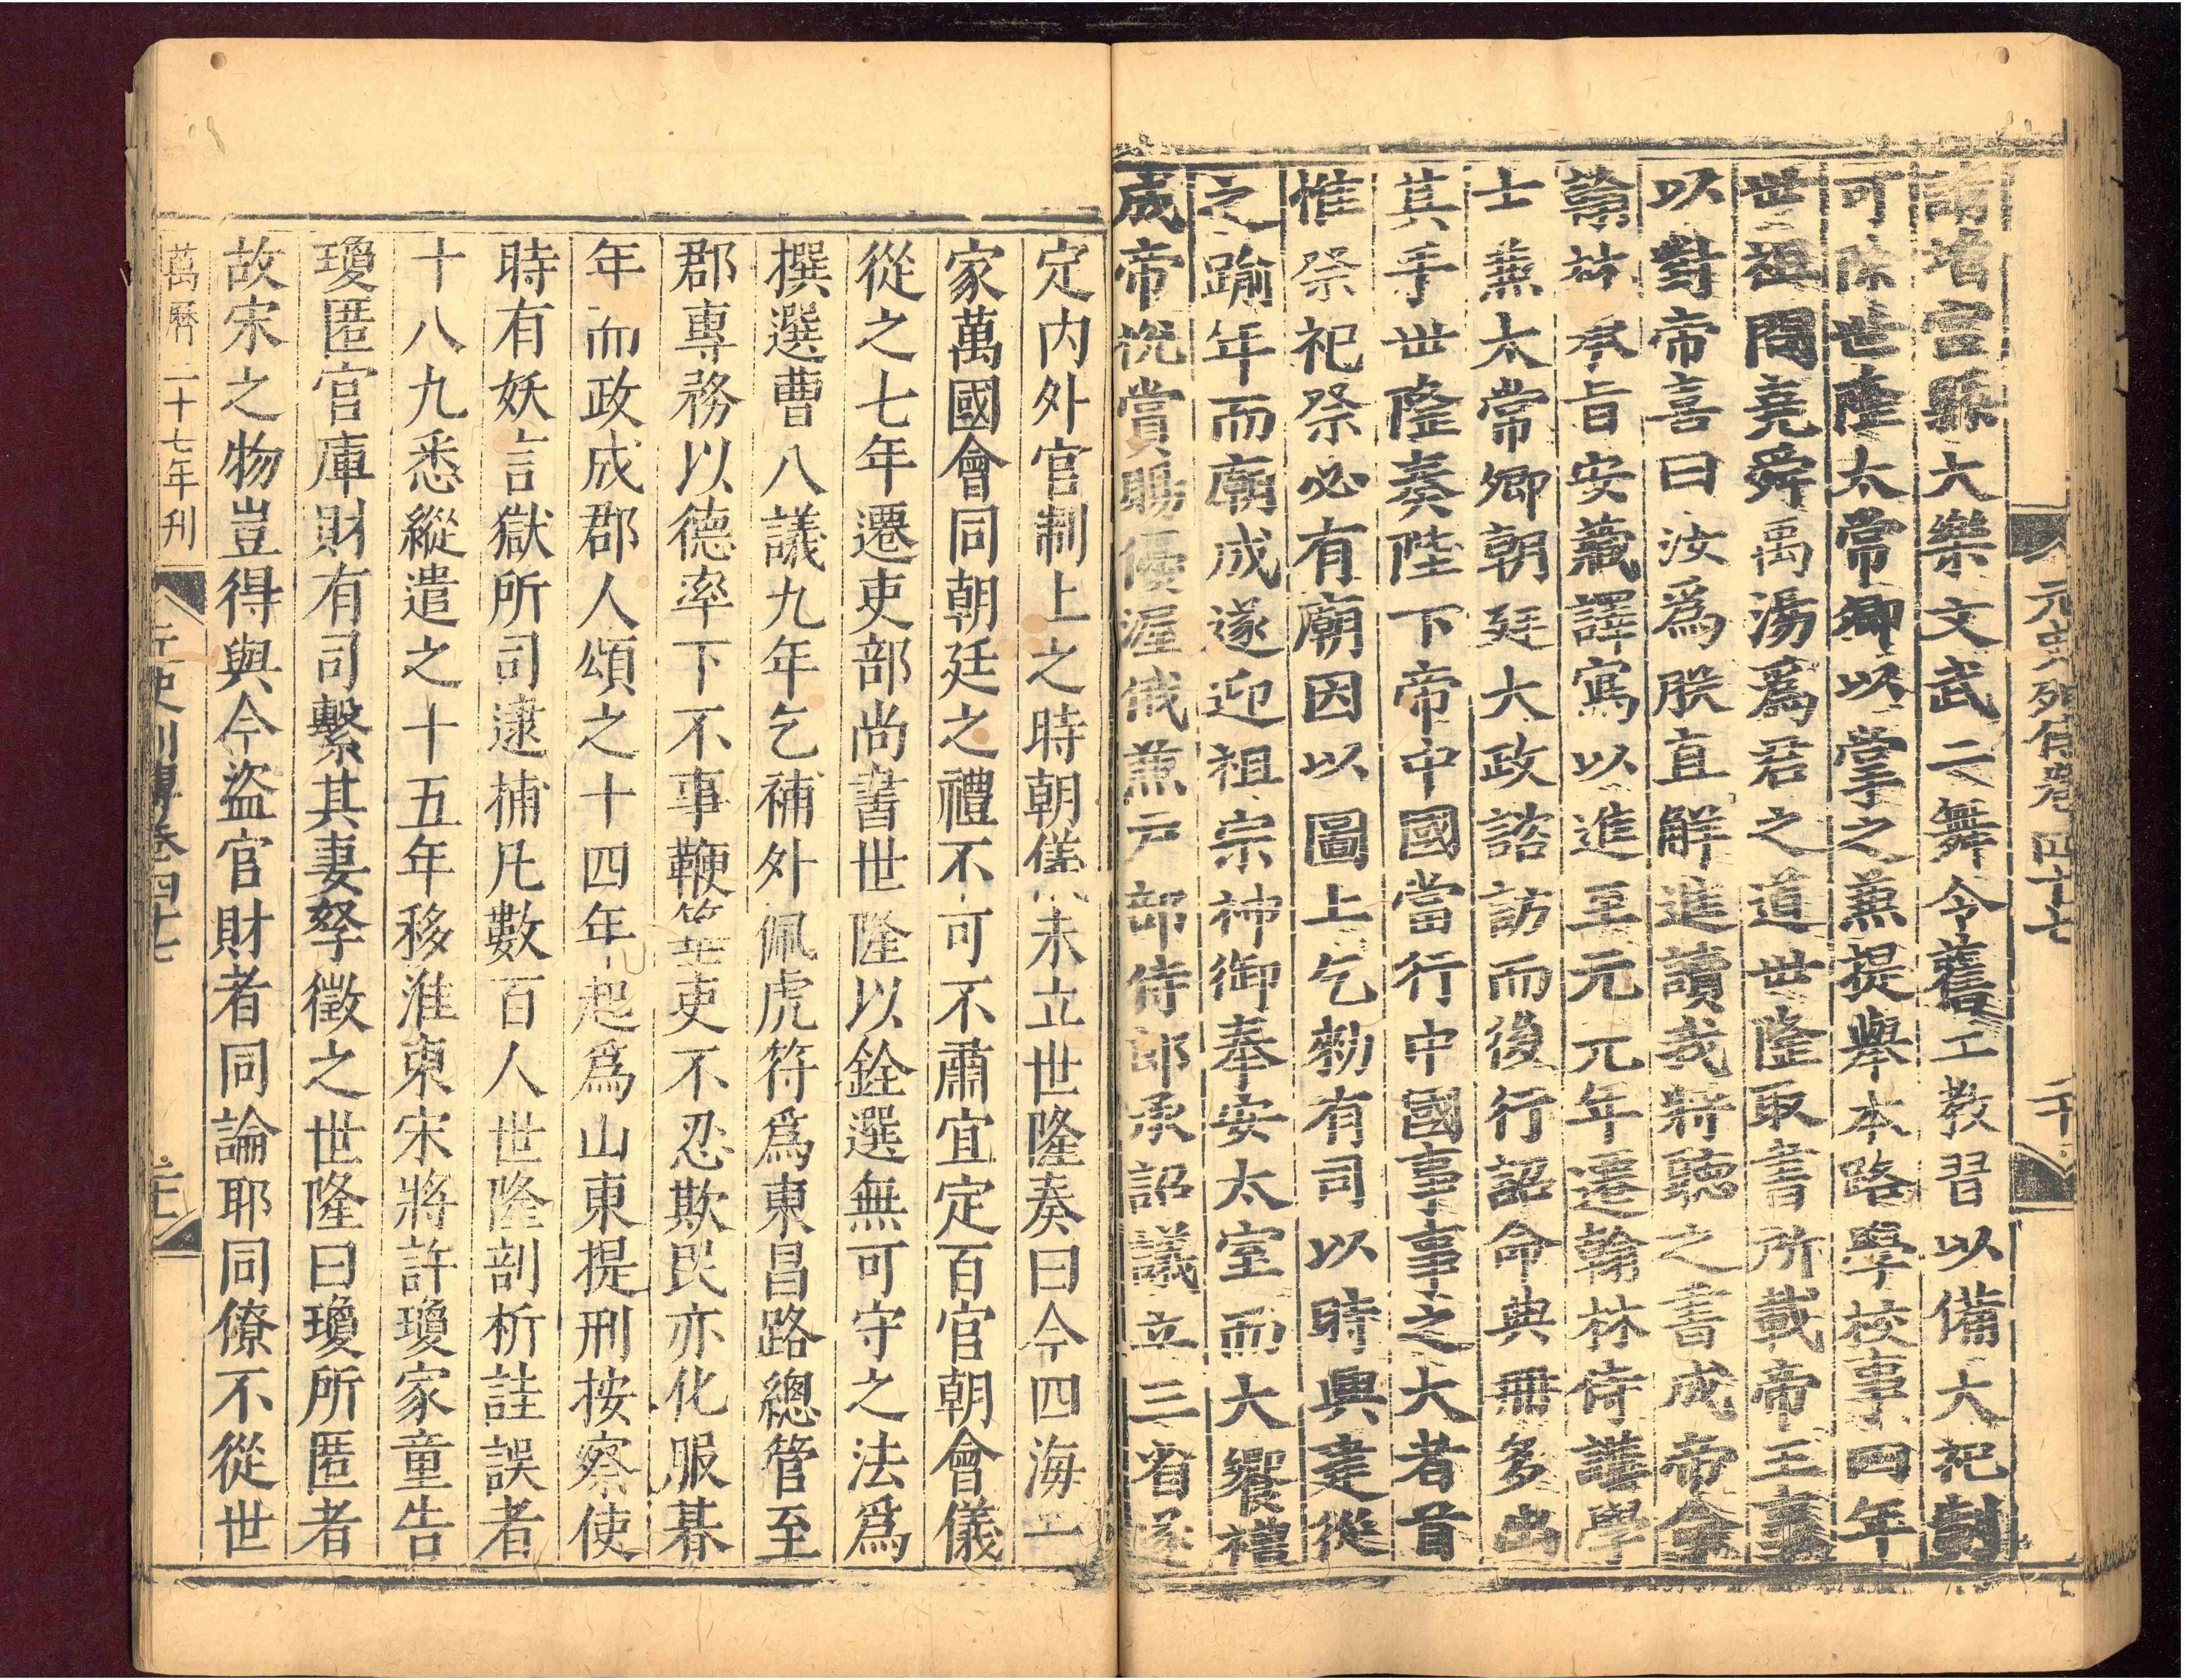 元史列傳卷四十七 二十
請增宮縣大樂文武二舞令舊工教習以備大祀制
可除世隆太常卿以掌之兼提舉本路學校事四年
世祖問堯舜禹湯爲君之道世隆取書所載帝王事
以對帝喜曰汝爲朕直解進讀我將聽之書成帝命
翰林承旨安藏譯寫以進至元元年遷翰林侍講學
士兼太常卿朝廷大政諮訪而後行詔命典冊多出
其手世隆奏陛下帝中國當行中國事事之大者首
惟祭祀祭必有廟因以圖上乞勑有司以時興建從
之踰年而廟成遂迎祖宗神御奉安太室而大饗禮
成帝悅賞賜優渥俄兼戶部侍郎承詔議立三省遂
定內外官制上之時朝儀未立世隆奏曰今四海一
家萬國會同朝廷之禮不可不肅宜定百官朝會儀
從之七年遷吏部尚書世隆以銓選無可守之法爲
撰選曹八議九年乞補外佩虎符爲東昌路總管至
郡專務以德率下不事鞭箠吏不忍欺民亦化服朞
年而政成郡人頌之十四年起爲山東提刑按察使
時有妖言獄所司逮捕凡數百人世隆剖析詿誤者
十八九悉縱遣之十五年移淮東宋將許瓊家童告
瓊匿官庫財有司繫其妻孥徵之世隆曰瓊所匿者
故宋之物豈得與今盜官財者同論耶同僚不從世
萬曆二十七年刊 元史列傳卷四十七 二十一